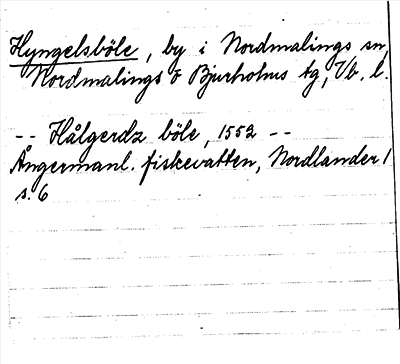 Hyngelsböle, by i Nordmalings sn,
Nordmalings o Bjurholms tg, Vb. l.
-- Hålgerdz böle, 1552 --
Ångermanl. fiskevatten, Nordlander 1
s. 6